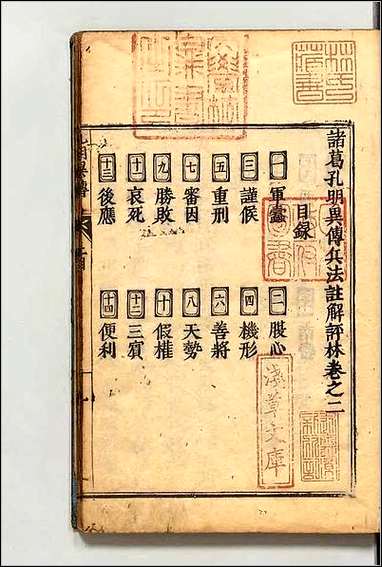 諸葛孔明異傳兵法註解評林卷之二
目錄
一 軍蠹
二 腹心
三 謹候
四 機形
五 重刑
六 善將
七 審因
八 天勢
九 勝敗
十 假權
十一 哀死
十二 三賓
十三 後應
十四 便利
淺草文庫